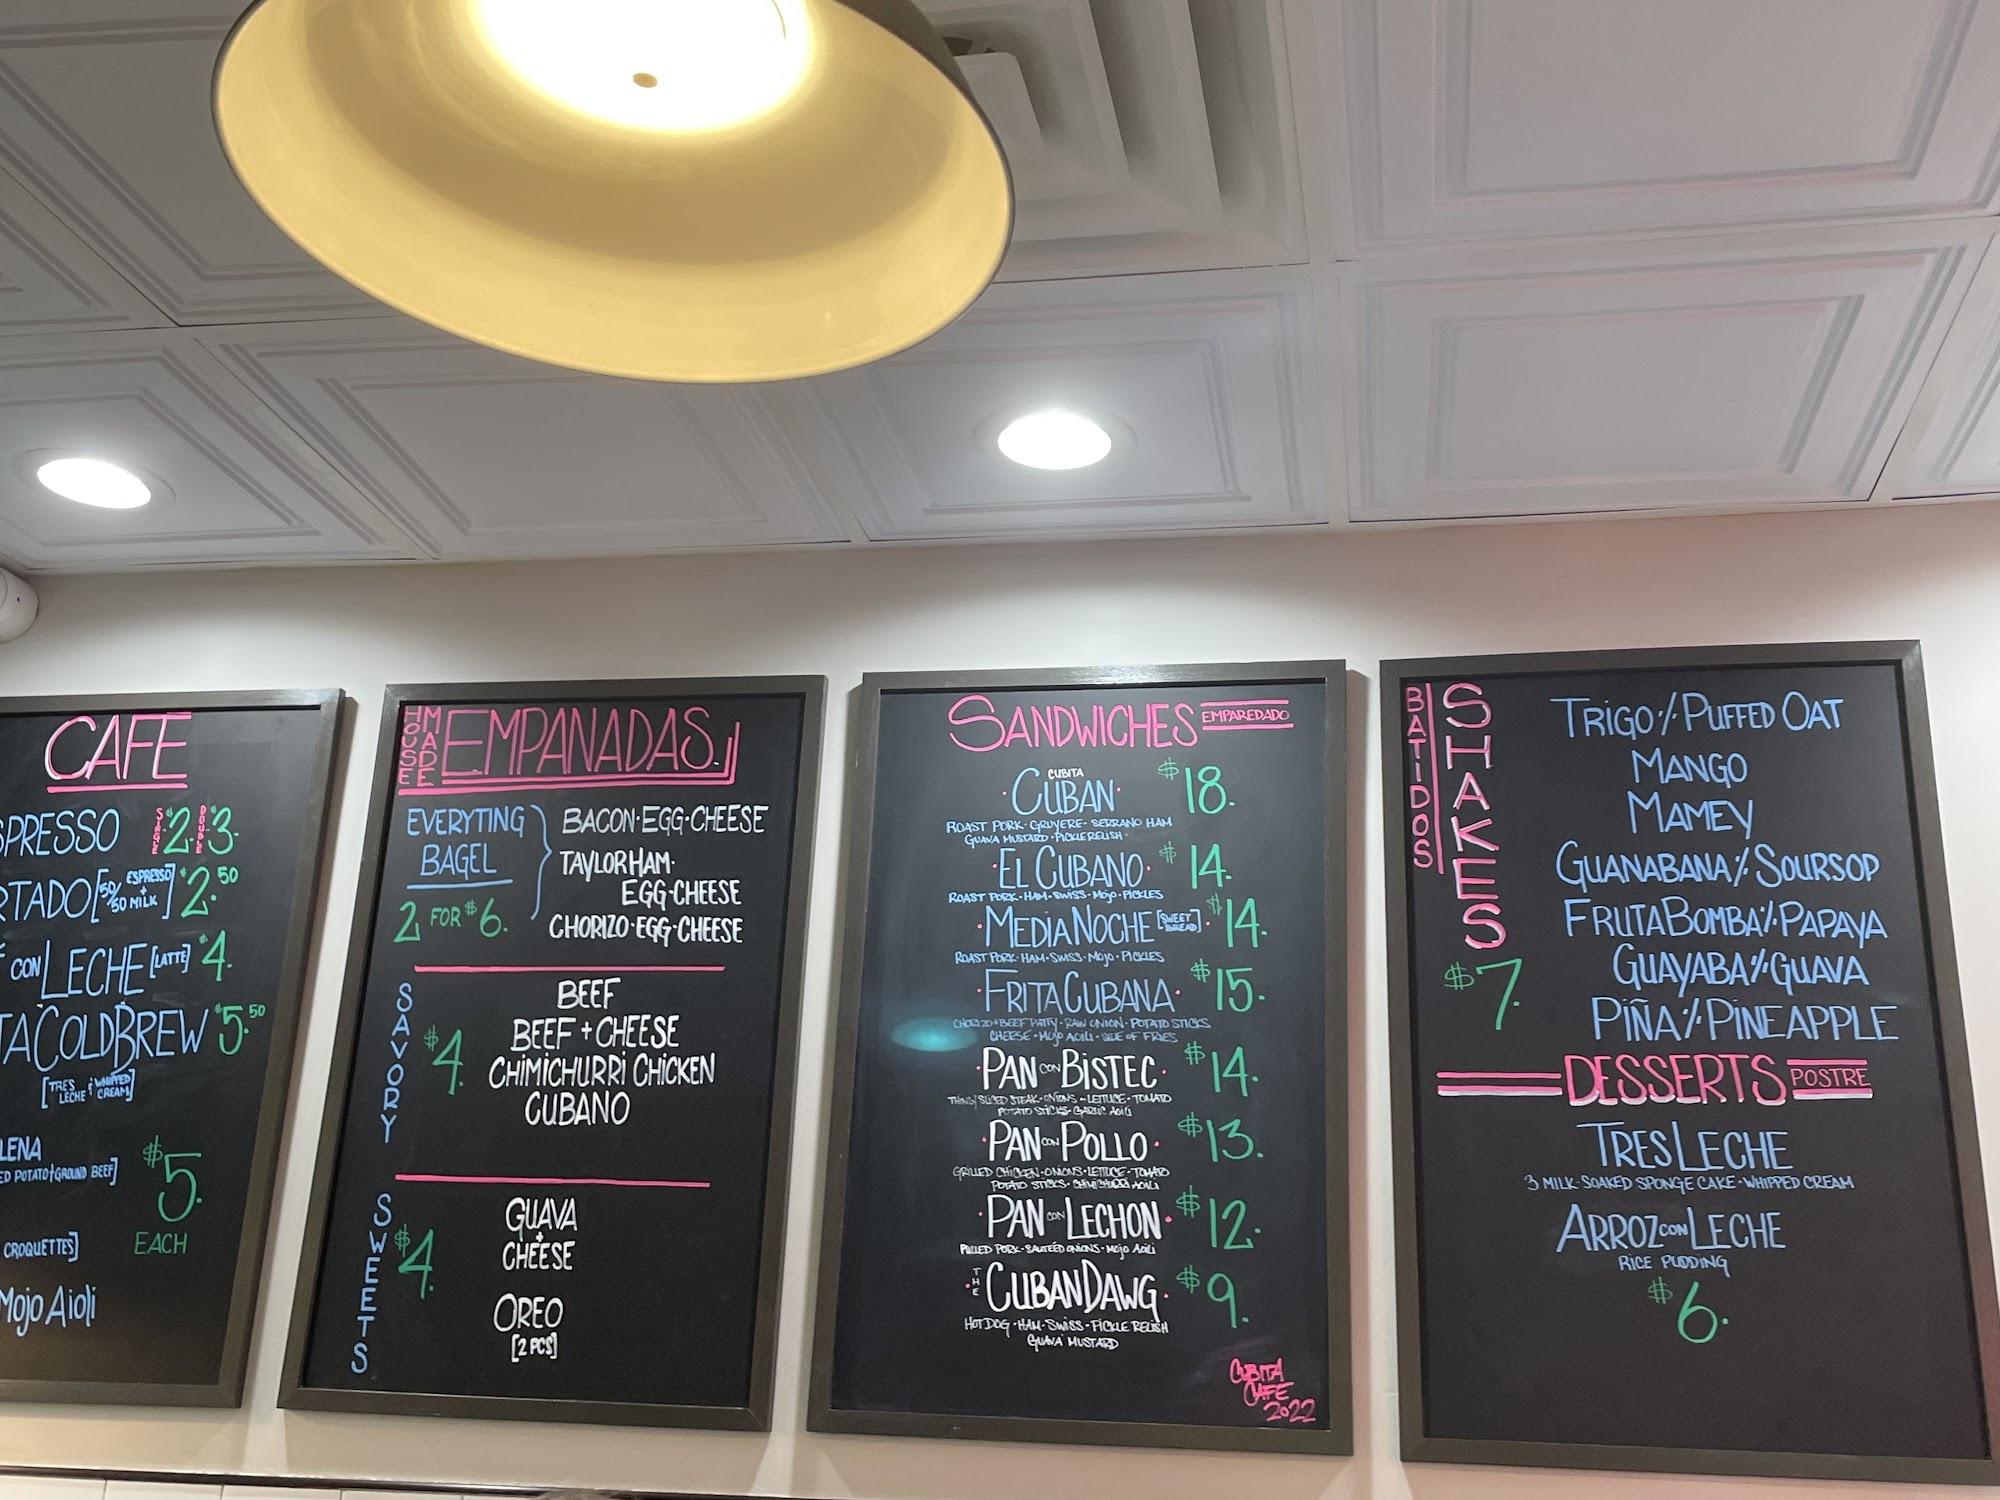 CAFE
SPRESSO SINGLE $2. DOUBLE $3.
RTADO [50/50 ESPRESSO + MILK] $2.50
CON LECHE [LATTE] $4.
TA COLD BREW $5.50
[TRES LECHE & WHIPPED CREAM]
LENA
ED POTATO + GROUND BEEF]
$5.
EACH
CROQUETTES]
MOJO AIOLI
HOUSE MADE EMPANADAS
EVERYTING
BAGEL
2 FOR $6.
BACON·EGG·CHEESE
TAYLOR HAM·
EGG·CHEESE
CHORIZO·EGG·CHEESE
SAVORY
$4.
BEEF
BEEF + CHEESE
CHIMICHURRI CHICKEN
CUBANO
SWEETS
$4.
GUAVA
+
CHEESE
OREO
[2 PCS]
SANDWICHES EMPAREDADO
CUBITA
·CUBAN· $18.
ROAST PORK· GRUYERE· SERRANO HAM
GUAVA MUSTARD· PICKLE RELISH·
·EL CUBANO· $14.
ROAST PORK· HAM· SWISS· MOJO· PICKLES
·MEDIA NOCHE [SWEET BREAD]· $14.
ROAST PORK· HAM· SWISS· MOJO· PICKLES
·FRITA CUBANA· $15.
CHORIZO + BEEF PATTY· RAW ONION· POTATO STICKS
CHEESE· MOJO AOILI· SIDE OF FRIES
·PAN CON BISTEC· $14.
THINLY SLICED STEAK· ONIONS· LETTUCE· TOMATO
POTATO STICKS· GARLIC AOILI
·PAN CON POLLO· $13.
GRILLED CHICKEN· ONIONS· LETTUCE· TOMATO
POTATO STICKS· CHIMICHURRI AOILI
·PAN CON LECHON· $12.
PULLED PORK· SAUTEÉD ONIONS· MOJO AOILI
·THE CUBAN DAWG· $9.
HOT DOG· HAM· SWISS· PICKLE RELISH
GUAVA MUSTARD
CUBITA
CAFE
2022
BATIDOS
SHAKES
$7.
TRIGO·/·PUFFED OAT
MANGO
MAMEY
GUANABANA·/·SOURSOP
FRUTA BOMBA·/·PAPAYA
GUAYABA·/·GUAVA
PIÑA·/·PINEAPPLE
DESSERTS POSTRE
TRES LECHE
3 MILK· SOAKED SPONGE CAKE· WHIPPED CREAM
ARROZ CON LECHE
RICE PUDDING
$6.